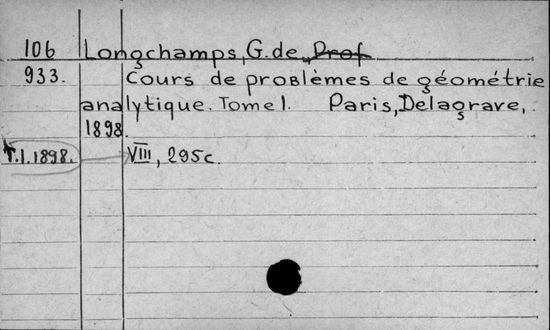 106 Longchamps, G. de, Prof
933. Cours de problèmes de géométrie
analytique. Tome I. Paris, Delagrave,
1898.
T.I.1898. VIII, 295c.